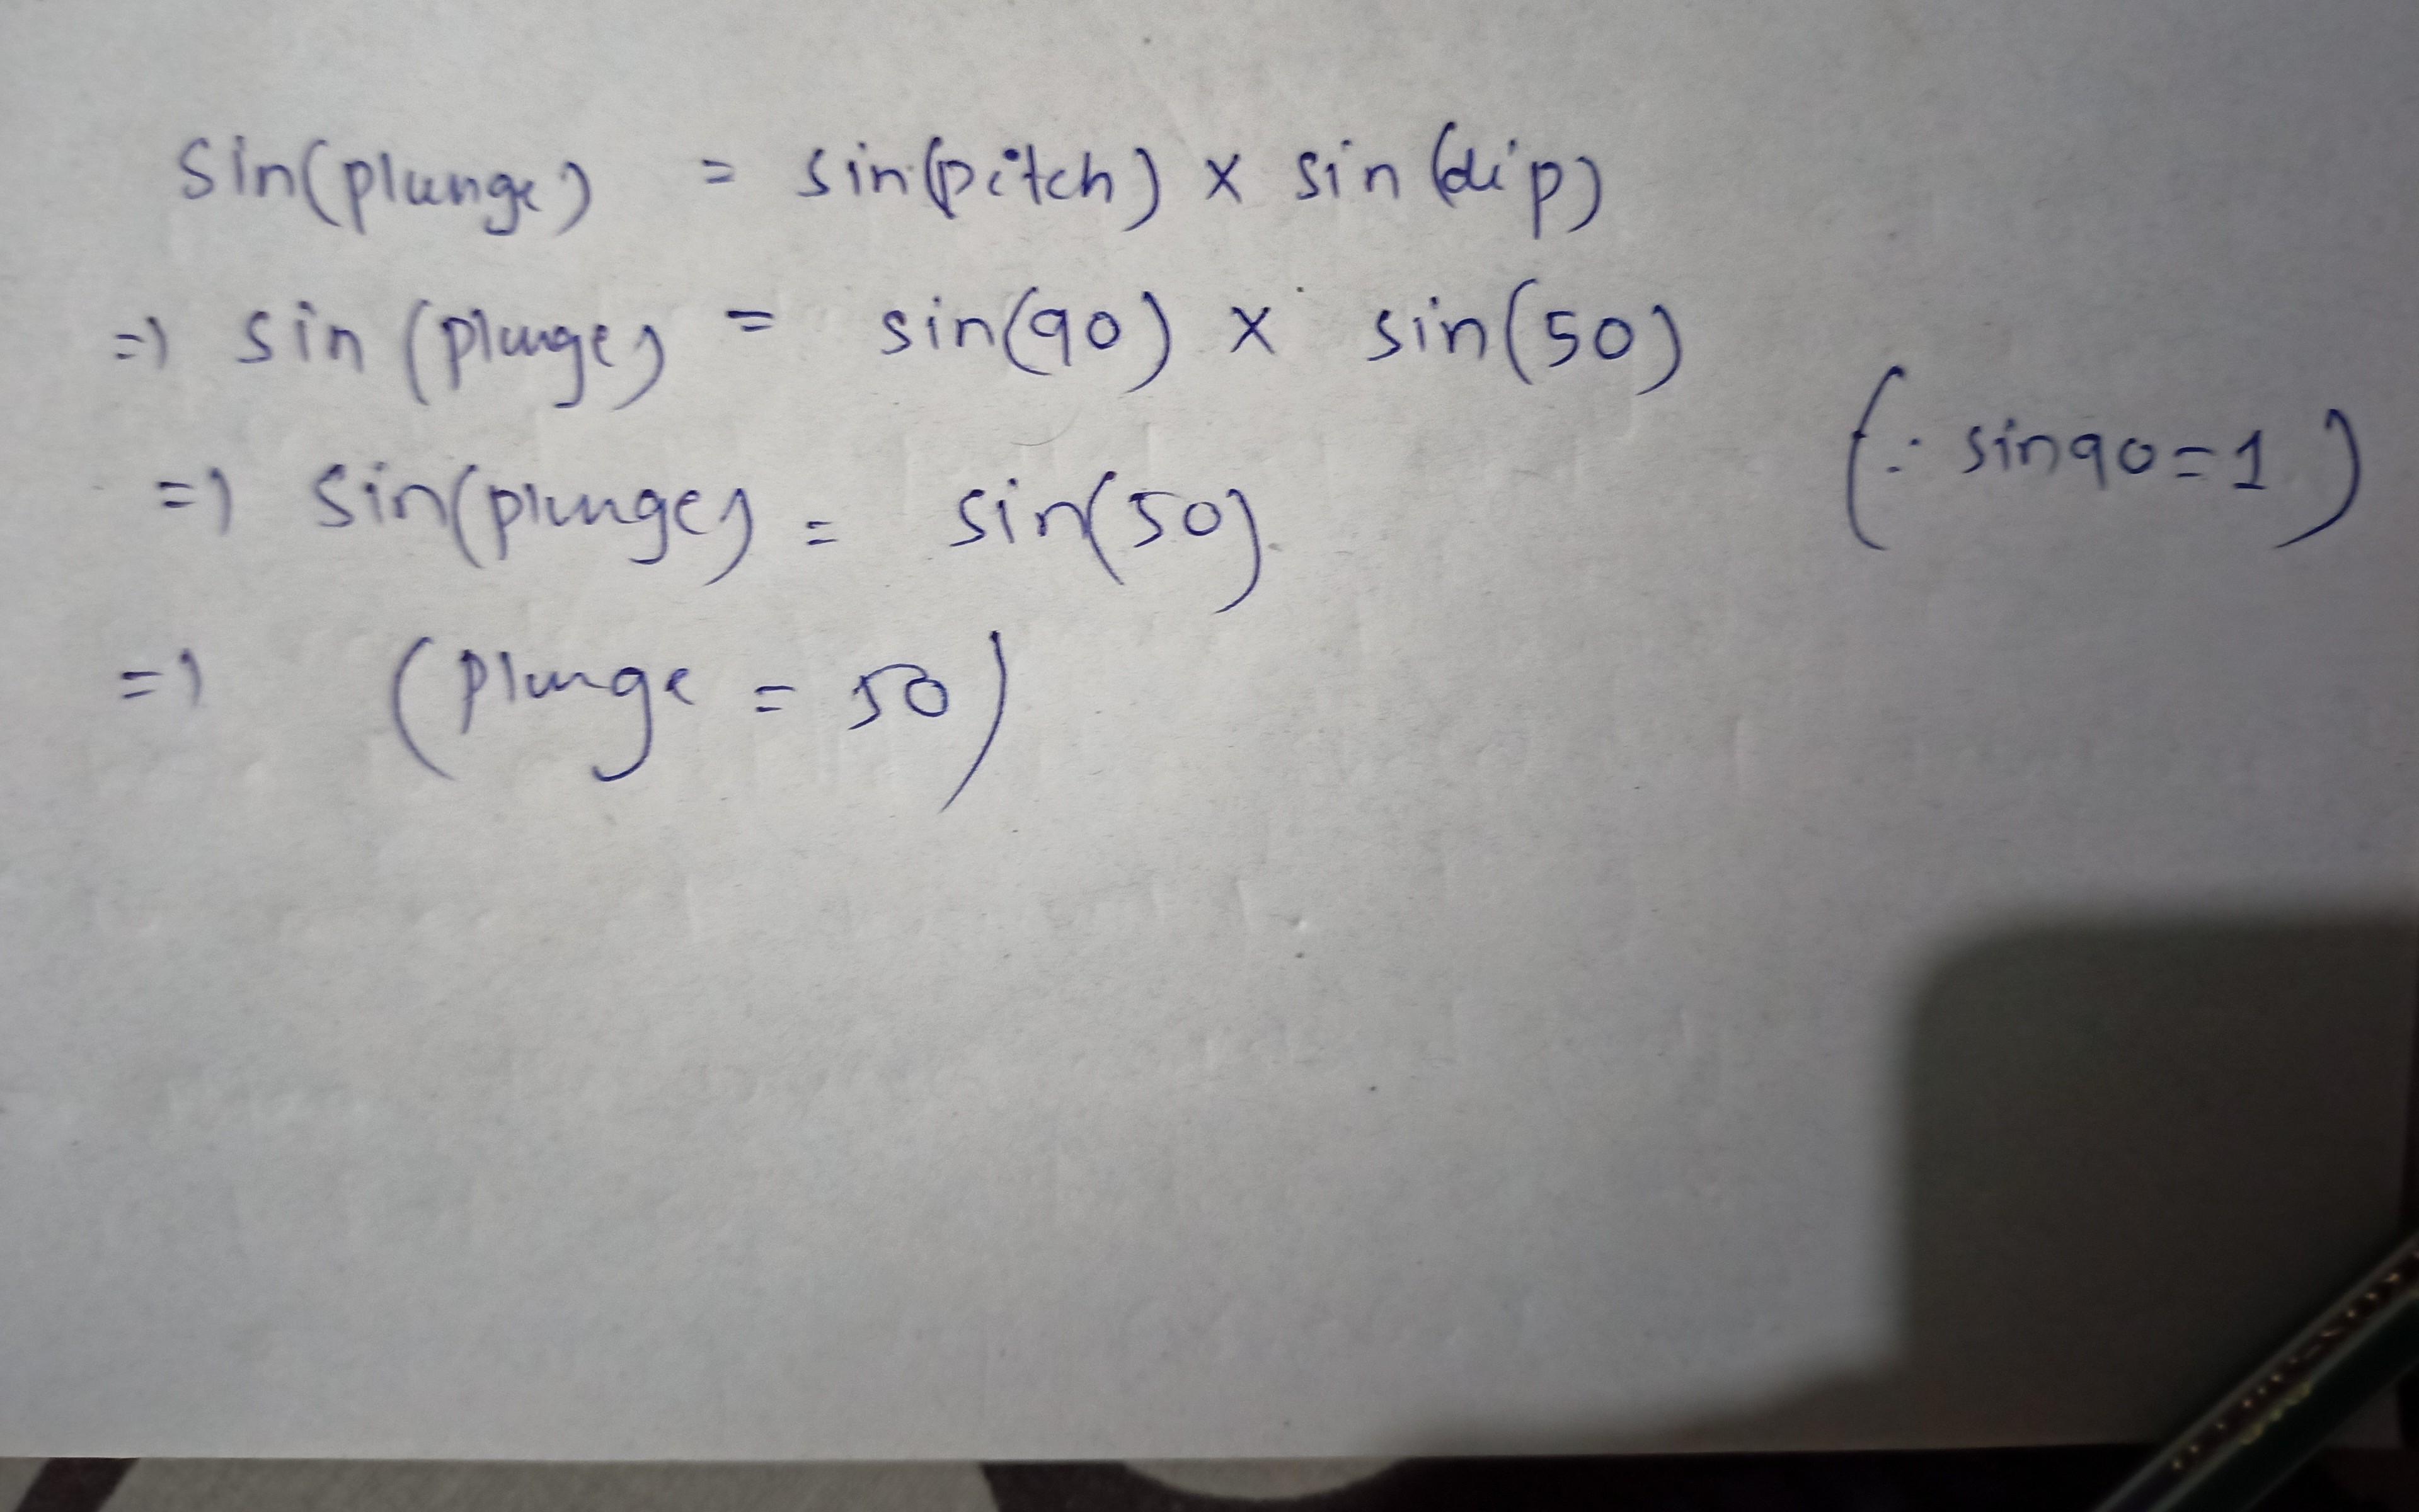 Sin(plunge) = sin(pitch) x sin(dip)
=> sin(plunge) = sin(90) x sin(50)
(∵ sin90=1)
=> sin(plunge) = sin(50)
=> (plunge = 50)